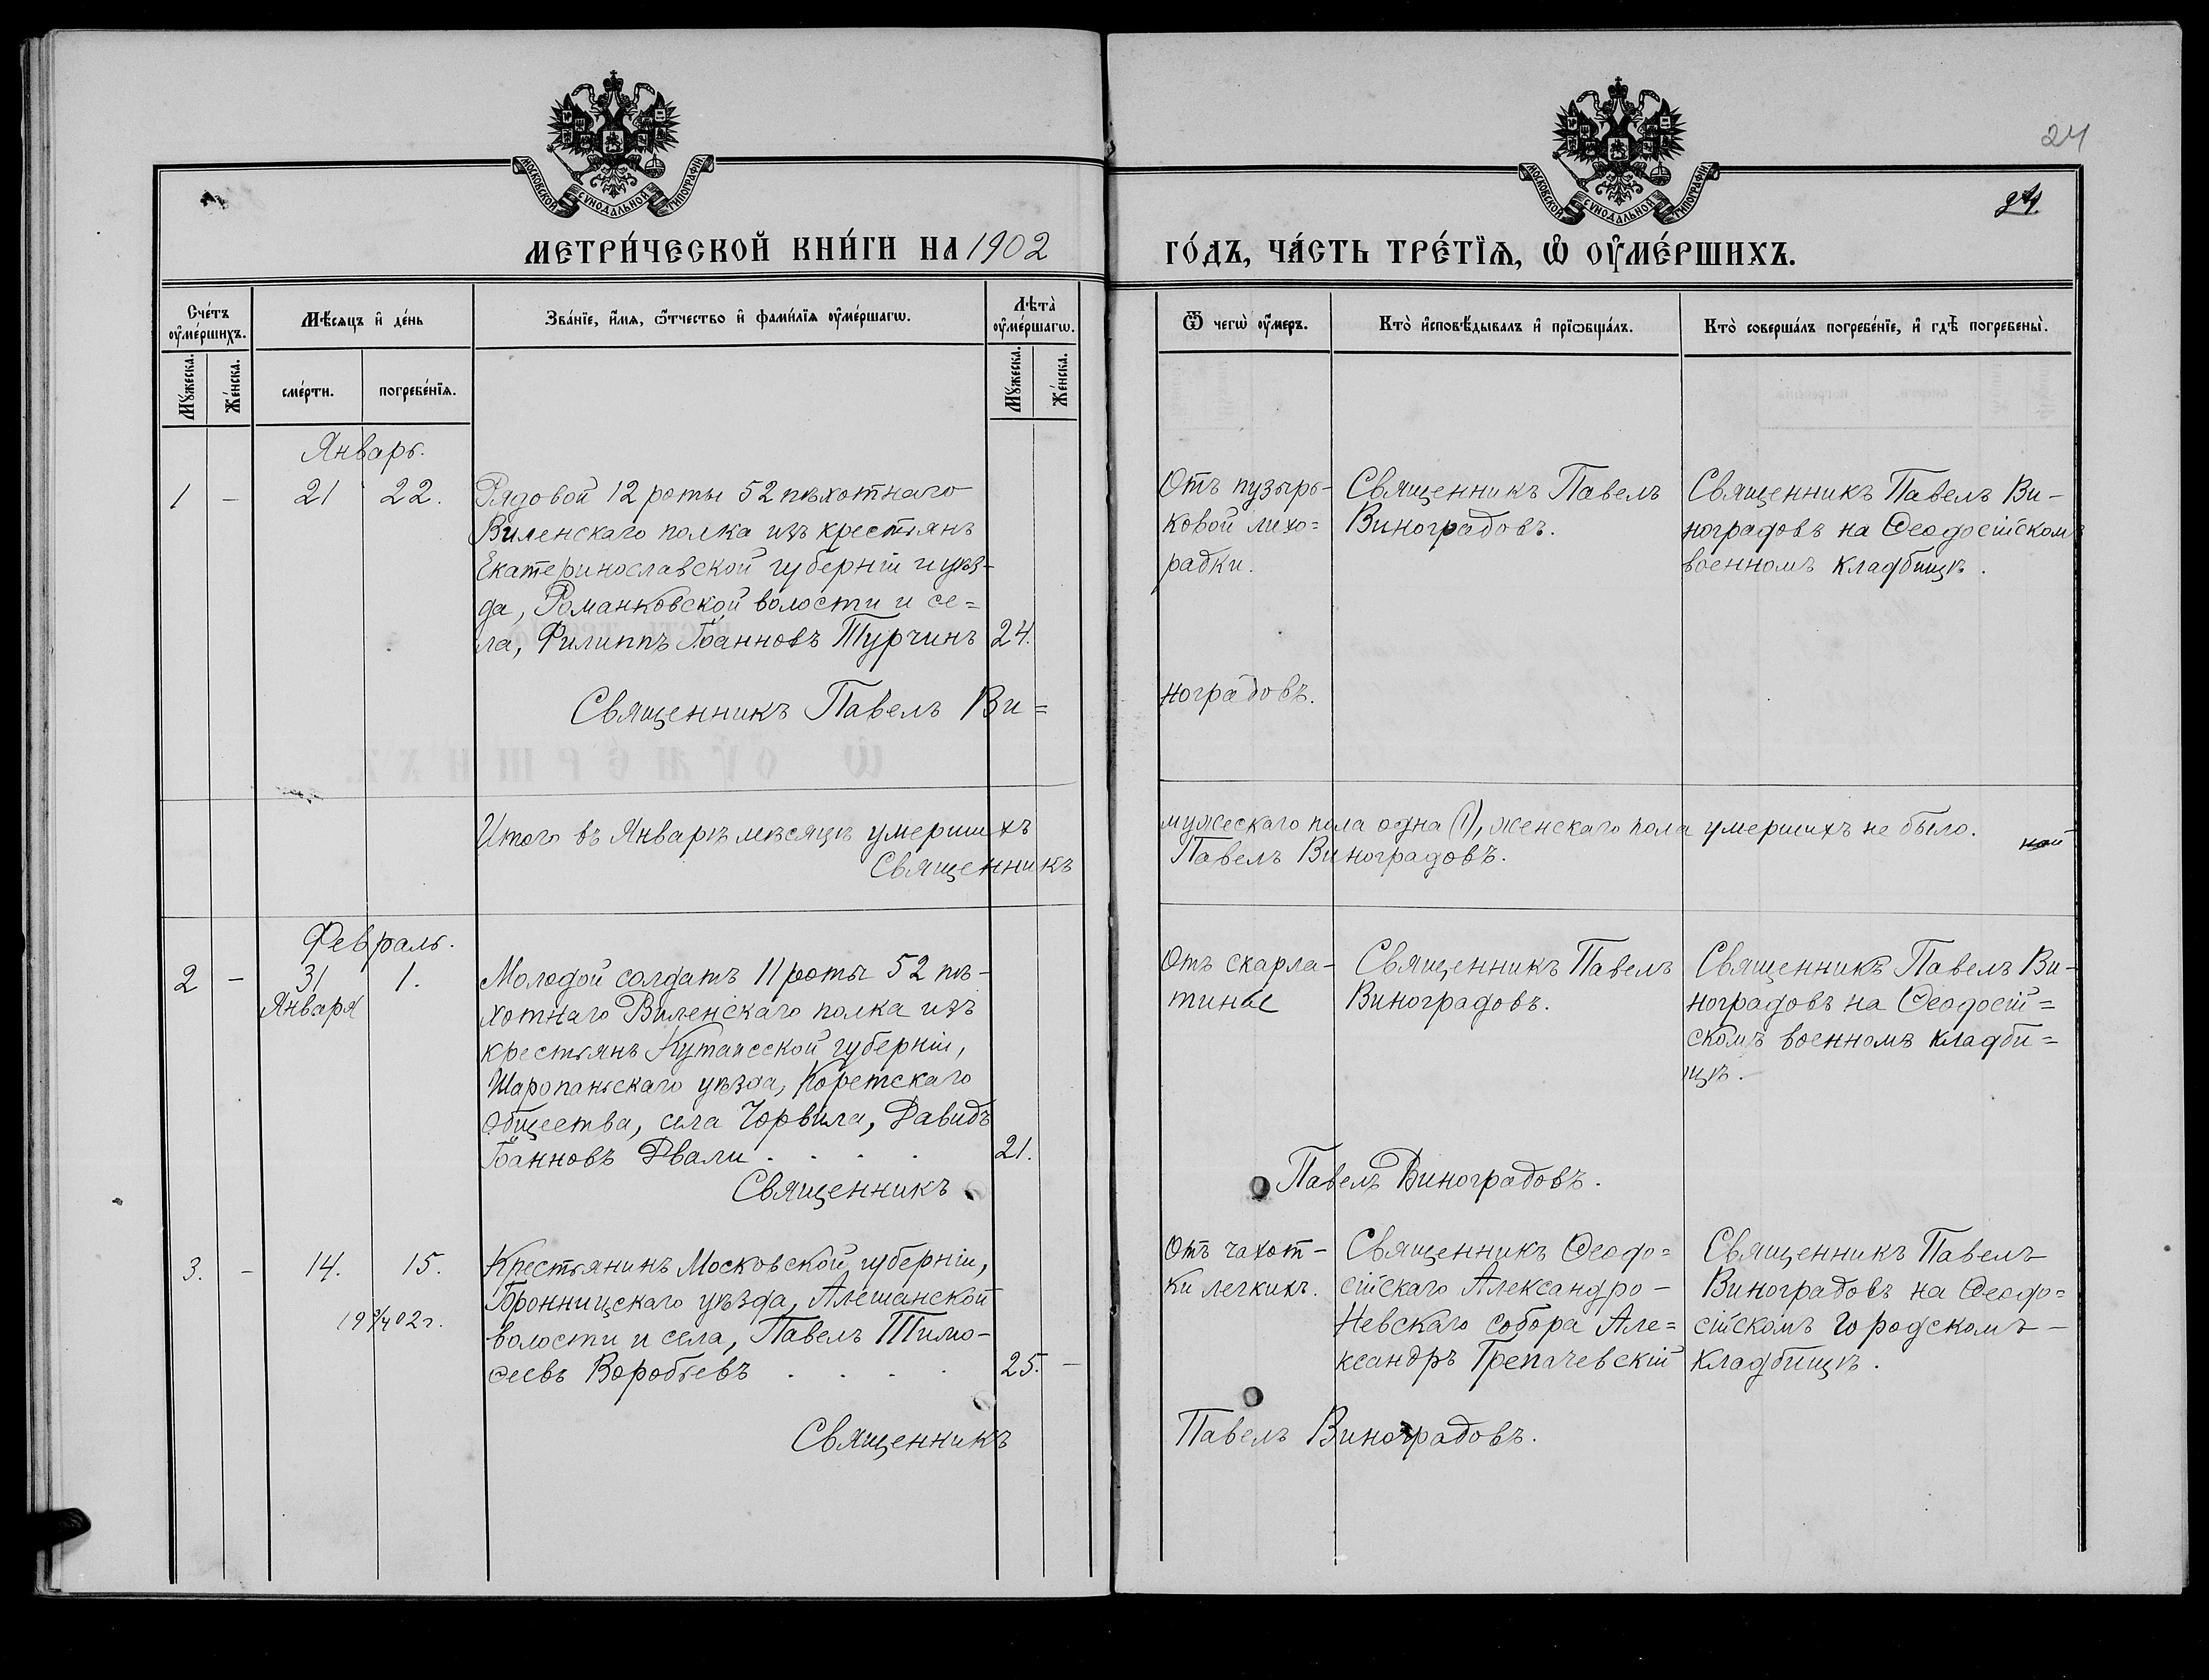 24
24.
МОСКОВСКОЙ СѴНОДАЛЬНОЙ ТИПОГРАФІИ
МОСКОВСКОЙ СѴНОДАЛЬНОЙ ТИПОГРАФІИ
МЕТРИ́ЧЕСКОЙ КНИ́ГИ НА 1902 ГО́ДЪ, ЧА́СТЬ ТРЕ́ТЇѦ, Ѡ҆ ОУ҆МЕ́РШИХЪ.
Сче́тъ оу҆ме́ршихъ.
Мѣ́сяцъ и҆ де́нь
Зва́нїе, и҆́мѧ, ѻ҆́тчество и҆ фами́лїѧ оу҆ме́ршагѡ.
Лѣта̀ оу҆ме́ршагѡ.
Ѿ чегѡ̀ оу҆́меръ.
Кто̀ и҆сповѣ́дывалъ и҆ прїѡбща́лъ.
Кто̀ соверша́лъ погребе́нїе, и҆ гдѣ̀ погребены̀.
Мꙋ́жеска.
Же́нска.
сме́рти.
погребе́нїѧ.
Мꙋ́жеска.
Же́нска.
Январь.
1 – 21 22.
Рядовой 12 роты 52 пѣхотнаго
Виленскаго полка изъ крестьянъ
Екатеринославской губерніи и уѣз-
да, Романковской волости и се=
ла, Филиппъ Іоанновъ Турчинъ 24.
Отъ пузырь-
ковой лихо=
радки.
Священникъ Павелъ
Виноградовъ.
Священникъ Павелъ Ви-
ноградовъ на Ѳеодосійскомъ
военномъ кладбищѣ.
Священникъ Павелъ Ви=
ноградовъ.
Итого въ Январѣ мѣсяцѣ умершихъ мужескаго пола одна (1), женскаго пола умершихъ не было.
Священникъ Павелъ Виноградовъ.
Февраль.
2 – 31 1.
Января
Молодой солдатъ 11 роты 52 пѣ-
хотнаго Виленскаго полка изъ
крестьянъ Кутаисской губерніи,
Шаропаньскаго уѣзда, Коретскаго
общества, села Чорвила, Давидъ
Іоанновъ Двали . . . . 21.
Отъ скарла-
тины
Священникъ Павелъ
Виноградовъ.
Священникъ Павелъ Ви-
ноградовъ на Ѳеодосій=
скомъ военномъ кладби=
щѣ.
Священникъ Павелъ Виноградовъ.
3. – 14. 15.
Крестьянинъ Московской губерніи,
Бронницскаго уѣзда, Алешанской
волости и села, Павелъ Тимо-
ѳеевъ Воробьевъ . . . . 25. –
Отъ чахот-
ки легкихъ.
Священникъ Ѳеодо=
сійскаго Александро-
Невскаго собора Але=
ксандръ Трепачевскій
Священникъ Павелъ
Виноградовъ на Ѳеодо=
сійскомъ городскомъ
кладбищѣ.
Священникъ Павелъ Виноградовъ.